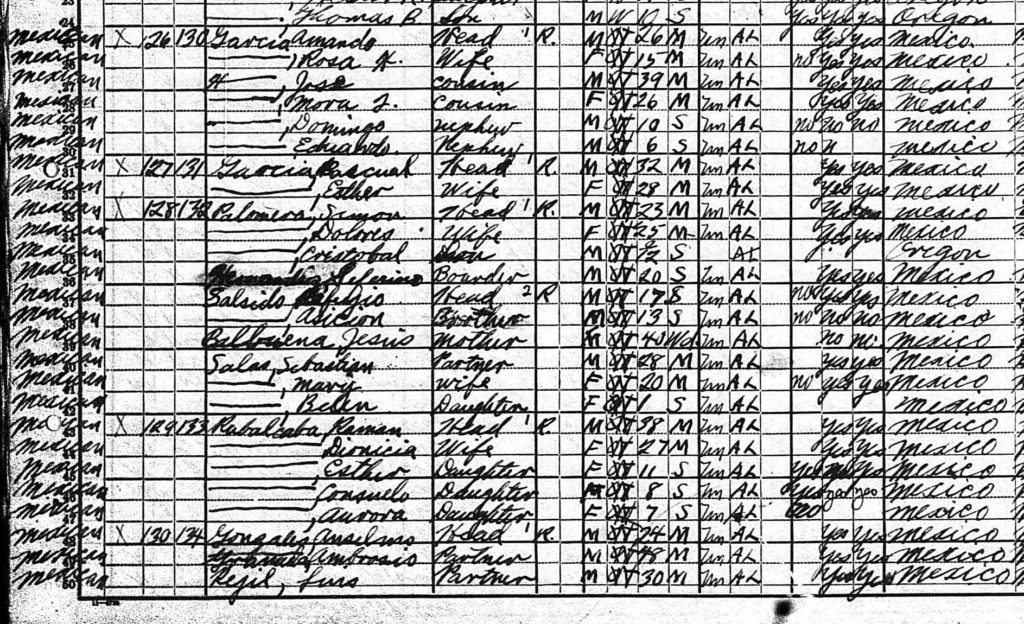 24 Thomas B Son M W 12 S Yes Yes Yes Oregon
Mexican X 126 130 Garcia Amando Head 1 R. M 26 M Un AL Yes Yes Mexico
Mexican Rosa H. Wife F 15 M Un AL no Yes Yes Mexico
Mexican Jose Cousin M 39 M Un AL Yes Yes Mexico
Mexican Mora Cousin F 26 M Un AL Yes Yes Mexico
Mexican 29 , Domingo nephew M 10 S Un AL no no no Mexico
Mexican Eduardo Nephew M 6 S Un AL no Mexico
Mexican 31 X 127 131 Garcia, Pascual Head 1 R. M 32 M Un AL Yes Yes Mexico
Mexican , Esther Wife F 28 M Un AL Yes Yes Mexico
Mexican X 128 132 Palomera, Simon Head 1 R. M 23 M Un AL Mexico
Mexican , Dolores Wife F 25 M Un AL Yes Yes Mexico
Mexican , Cristobal M S AL Oregon
Mexican 36 Boarder M 20 S Un AL Yes Yes Mexico
Mexican Salsido Refugio Head 2 R M 17 S Un AL no Yes Yes Mexico
Mexican , Asicion Brother M 13 S Un AL no no no Mexico
Mexican Balbuena, Jesus Mother Wd Un AL No Mexico
Mexican 40 Salas, Sebastian Partner M 28 M Un AL Yes Yes Mexico
Mexican , Mary Wife F 20 M Un AL no Yes Yes Mexico
Mexican , Belen Daughter F 1 S Un AL Mexico
X 129 133 Rubalcaba, Raman Head 1 R. M 38 M Un AL Yes Yes Mexico
Mexican , Dionicia Wife F 27 M Un AL Yes Yes Mexico
Mexican , Esther Daughter F 11 S Un AL Yes Yes Yes Mexico
Mexican , Consuelo Daughter 8 S Un AL Yes Yes Yes Mexico
Mexican 47 , Aurora Daughter F 7 S Un AL no Mexico
Mexican X 130 134 Gonzales Anselmo Head 1 R. M 24 M Un AL Yes Yes Mexico
Mexican Ambrosio Partner M 48 M Un AL Yes Yes Mexico
Mexican 50 Partner M 30 M Un AL Yes Yes Mexico